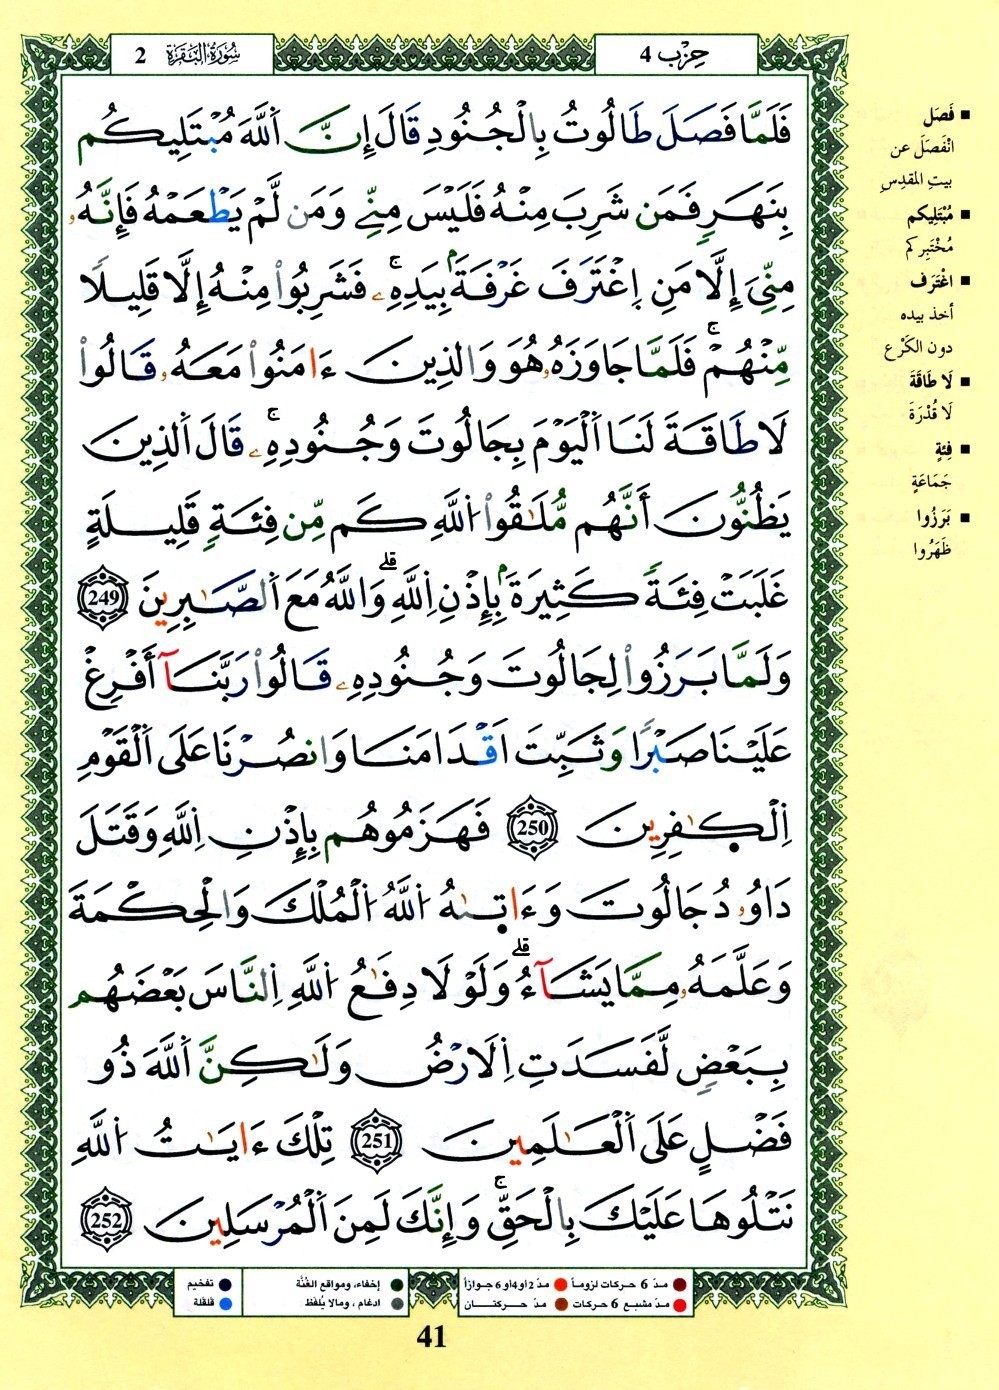 حِزْب 4
سُورَةُ البَقَرَةِ 2
فَلَمَّا فَصَلَ طَالُوتُ بِالْجُنُودِ قَالَ إِنَّ اَ۬للَّهَ مُبْتَلِيكُم
بِنَهَرٖ فَمَن شَرِبَ مِنْهُ فَلَيْسَ مِنِّے وَمَن لَّمْ يَطْعَمْهُ فَإِنَّهُۥ
مِنِّيَ إِلَّا مَنِ اِ۪غْتَرَفَ غَرْفَةَۢ بِيَدِهِۦۚ فَشَرِبُواْ مِنْهُ إِلَّا قَلِيلاٗ
مِّنْهُمْۚ فَلَمَّا جَاوَزَهُۥ هُوَ وَالذِينَ ءَامَنُواْ مَعَهُۥ قَالُواْ
لَا طَاقَةَ لَنَا اَ۬لْيَوْمَ بِجَالُوتَ وَجُنُودِهِۦۚ قَالَ اَ۬لذِينَ
يَظُنُّونَ أَنَّهُم مُّلَٰقُواْ اُ۬للَّهِ كَم مِّن فِئَةٖ قَلِيلَةٍ
غَلَبَتْ فِئَةٗ كَثِيرَةَۢ بِإِذْنِ اِ۬للَّهِۖ وَاللَّهُ مَعَ اَ۬لصَّٰبِرِينَ 249
وَلَمَّا بَرَزُواْ لِجَالُوتَ وَجُنُودِهِۦ قَالُواْ رَبَّنَآ أَفْرِغْ
عَلَيْنَا صَبْراٗ وَثَبِّتَ اَقْدَامَنَا وَانصُرْنَا عَلَى اَ۬لْقَوْمِ
اِ۬لْكٰ۪فِرِينَ 250 فَهَزَمُوهُم بِإِذْنِ اِ۬للَّهِ وَقَتَلَ
دَاوُۥدُ جَالُوتَ وَءَات۪ىٰهُ اُ۬للَّهُ اُ۬لْمُلْكَ وَالْحِكْمَةَ
وَعَلَّمَهُۥ مِمَّا يَشَآءُۖ وَلَوْلَا دِفَٰعُ اُ۬للَّهِ اِ۬لنَّاسَ بَعْضَهُم
بِبَعْضٖ لَّفَسَدَتِ اِ۬لَارْضُ وَلَٰكِنَّ اَ۬للَّهَ ذُو
فَضْلٍ عَلَى اَ۬لْعَٰلَمِينَ 251 تِلْكَ ءَايَٰتُ اُ۬للَّهِ
نَتْلُوهَا عَلَيْكَ بِالْحَقِّۚ وَإِنَّكَ لَمِنَ اَ۬لْمُرْسَلِينَ 252
■ فَصَل
انْفَصَلَ عن
بيتِ المقدِسِ
■ مُبْتَلِيكم
مُخْتَبِركم
■ اغْتَرَف
أخذ بيده
دون الكَرْع
■ لَا طَاقَةَ
لَا قُدْرَةَ
■ فِئَةٍ
جَمَاعَةٍ
■ بَرَزُوا
ظَهَرُوا
مدّ 6 حركات لزوماً ● مدّ 2 أو 4 أو 6 جوازاً
مدّ مشبع 6 حركات ● مدّ حركتان
إخفاء، ومواقع الغُنَّة
ادغام ، ومالا يُلفَظ
تفخيم
قلقلة
41